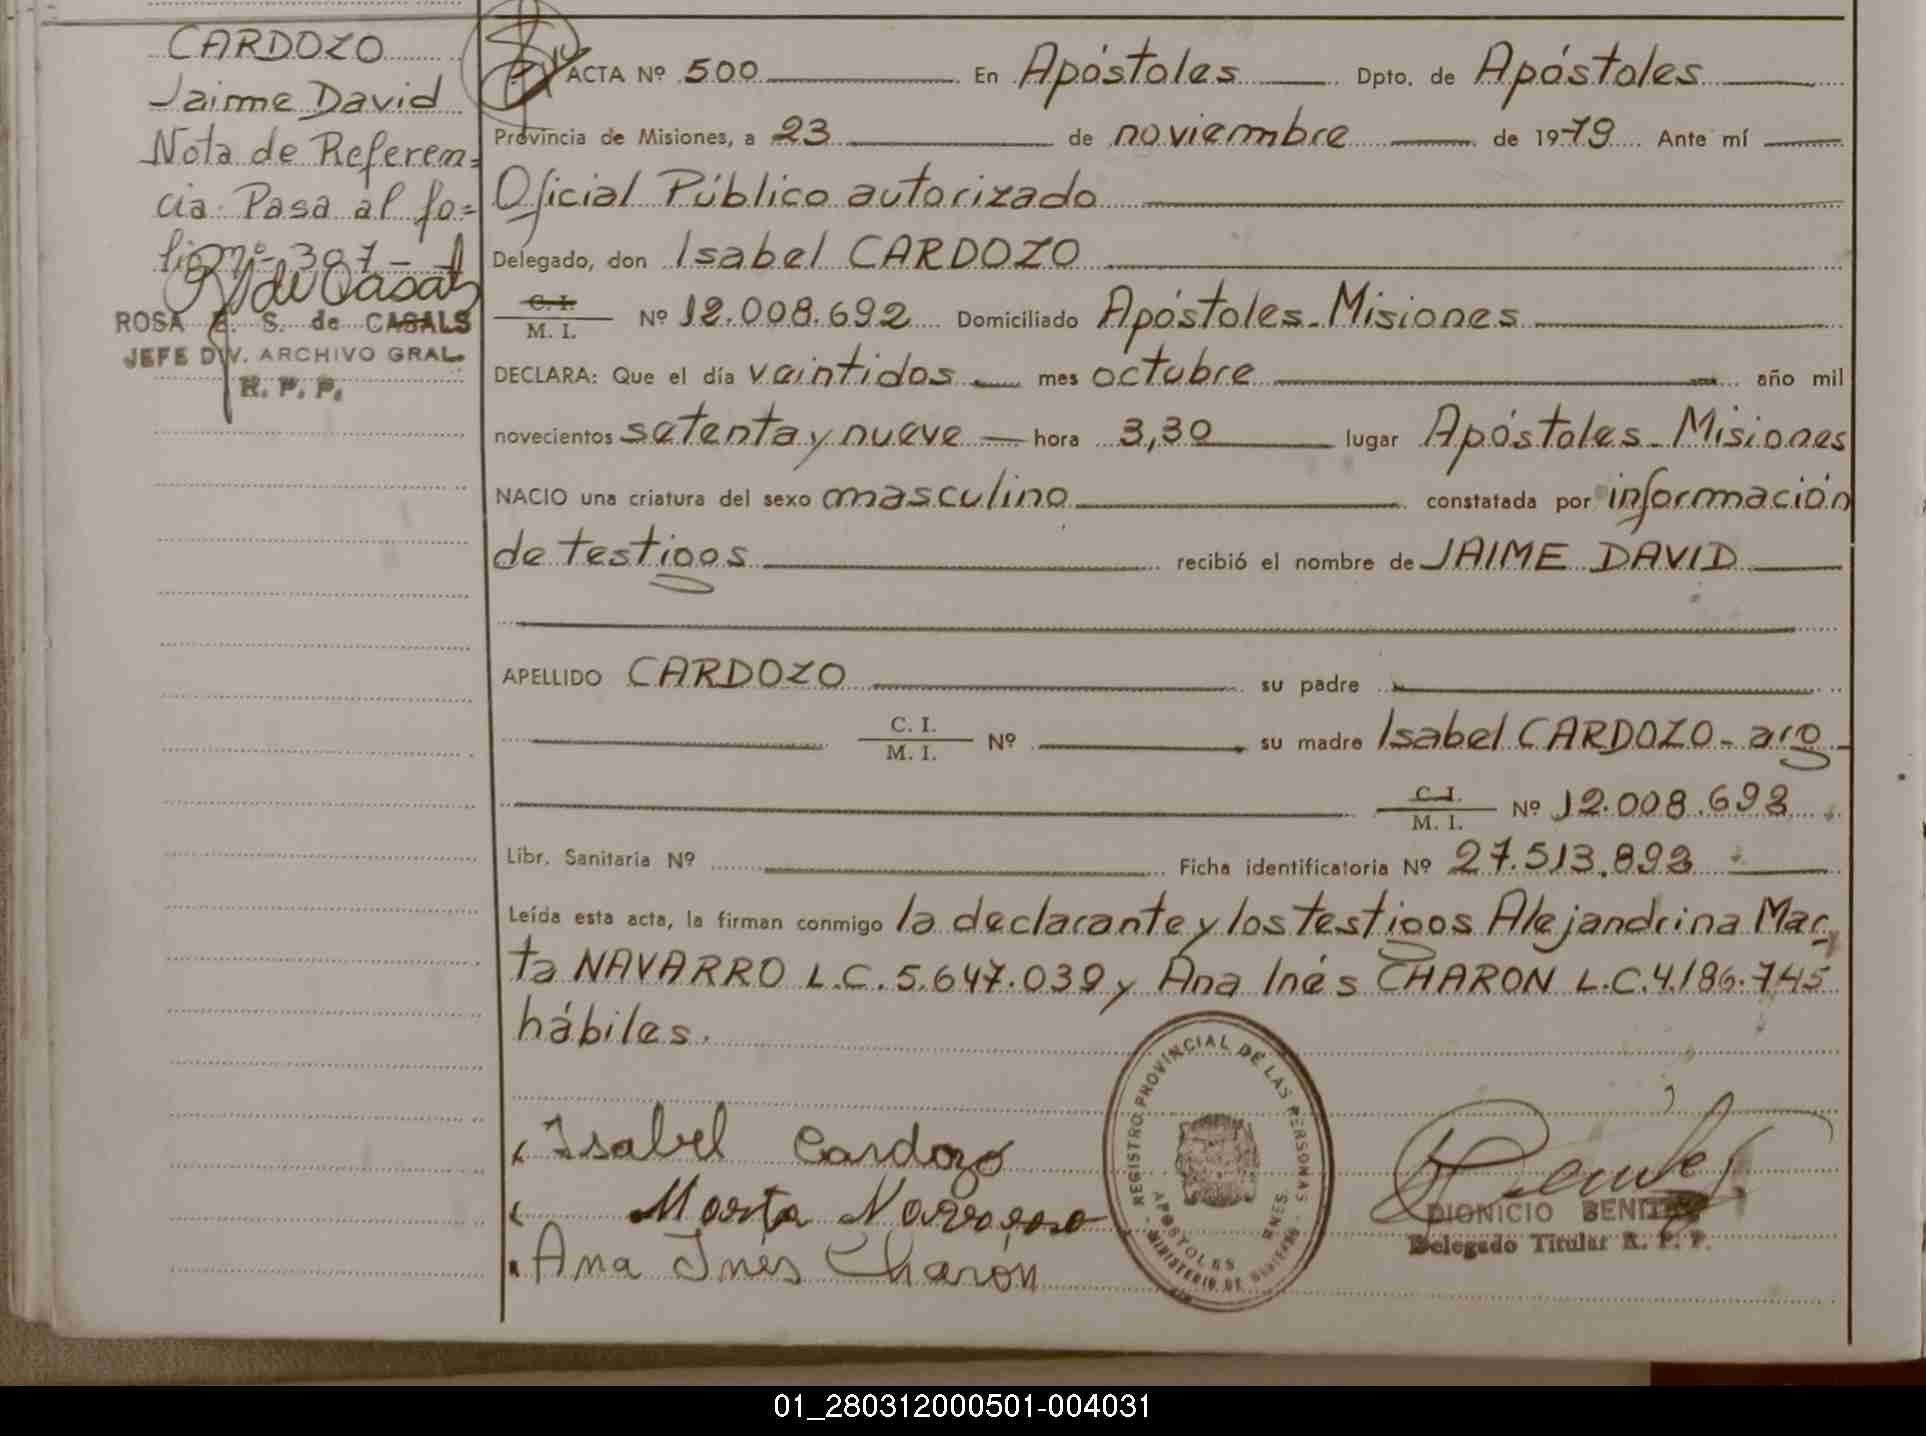 CARDOZO
Jaime David
Nota de Referen=
cia Pasa al fo=
lio nº 397 -
ROSA E. S. de CASALS
JEFE DIV. ARCHIVO GRAL.
R. P. P.
ACTA Nº 500 En Apóstoles Dpto. de Apóstoles
Provincia de Misiones, a 23 de noviembre de 1979 Ante mí
Oficial Público autorizado
Delegado, don Isabel CARDOZO
C. I.
M. I. Nº 12.008.692 Domiciliado Apóstoles - Misiones
DECLARA: Que el día veintidos mes octubre año mil
novecientos setenta y nueve hora 3,30 lugar Apóstoles - Misiones
NACIO una criatura del sexo masculino constatada por información
de testigos recibió el nombre de JAIME DAVID
APELLIDO CARDOZO su padre
C. I.
M. I. Nº su madre Isabel CARDOZO - arg
C. I.
M. I. Nº 12.008.692
Libr. Sanitaria Nº Ficha identificatoria Nº 27.513.892
Leída esta acta, la firman conmigo la declarante y los testigos Alejandrina Mar
ta NAVARRO L.C. 5.647.039 y Ana Inés CHARON L.C. 4.186.745
hábiles.
Isabel Cardozo
Marta Navarro
Ana Inés Charón
REGISTRO PROVINCIAL DE LAS PERSONAS
APOSTOLES MNES.
MINISTERIO DE GOBIERNO
DIONICIO BENITEZ
Delegado Titular R. P. P.
01_280312000501-004031